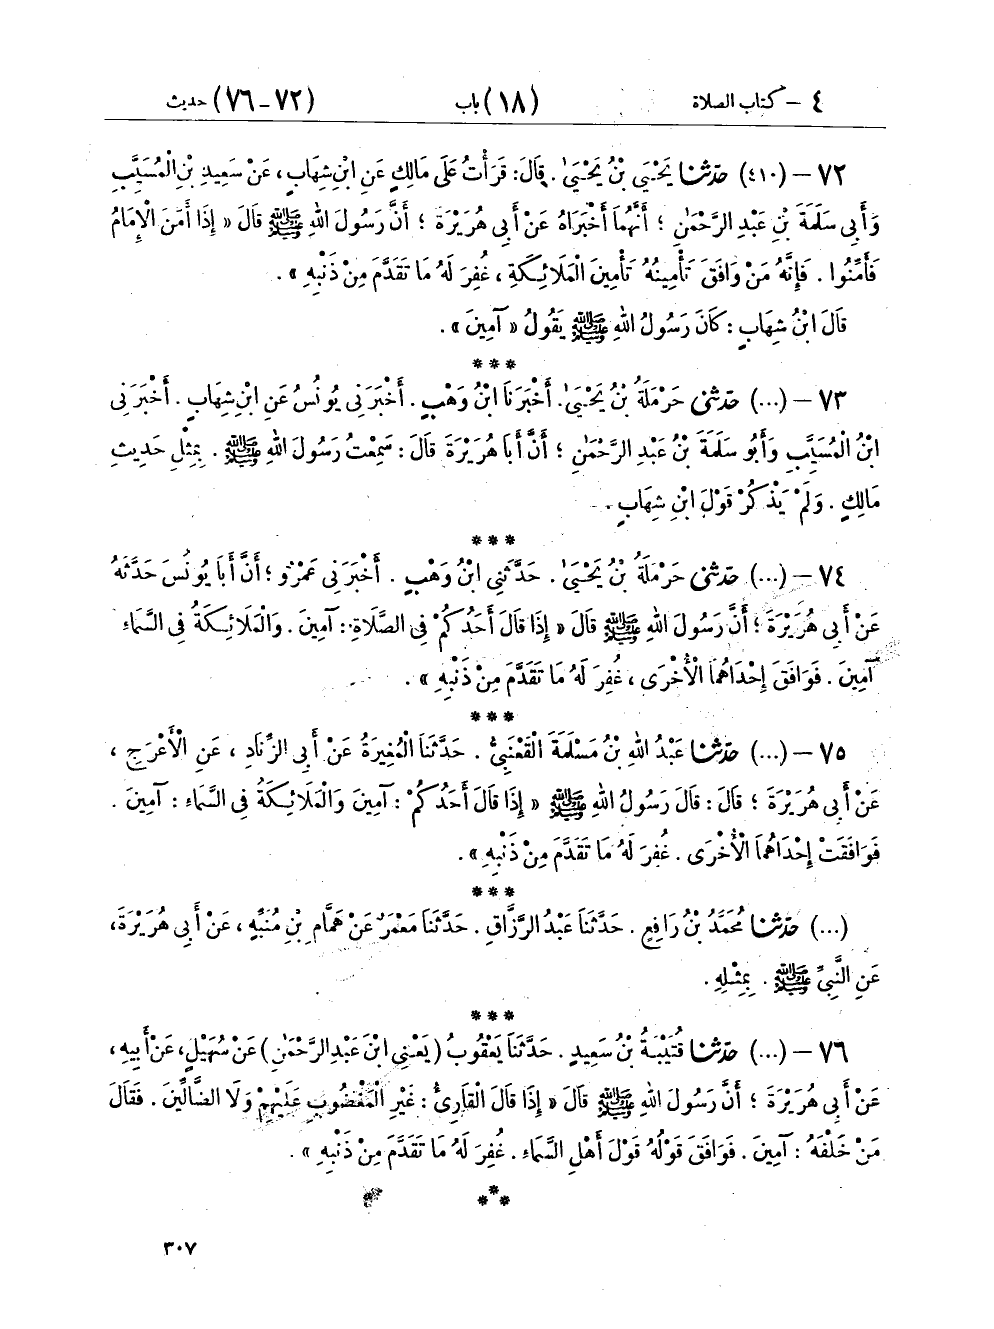 ٤ - كتاب الصلاة (١٨) باب (٧٢-٧٦) حديث
٧٢ - (٤١٠) حَدَّثَنَا يَحْيَى بْنُ يَحْيَىٰ. قَالَ: قَرَأْتُ عَلَى مَالِكٍ عَنِ ابْنِ شِهَابٍ، عَنْ سَعِيدِ بْنِ الْمُسَيَّبِ
وَأَبِي سَلَمَةَ بْنِ عَبْدِ الرَّحْمَٰنِ؛ أَنَّهُمَا أَخْبَرَاهُ عَنْ أَبِي هُرَيْرَةَ؛ أَنَّ رَسُولَ اللهِ ﷺ قَالَ «إِذَا أَمَّنَ الْإِمَامُ
فَأَمِّنُوا. فَإِنَّهُ مَنْ وَافَقَ تَأْمِينُهُ تَأْمِينَ الْمَلَائِكَةِ، غُفِرَ لَهُ مَا تَقَدَّمَ مِنْ ذَنْبِهِ».
قَالَ ابْنُ شِهَابٍ: كَانَ رَسُولُ اللهِ ﷺ يَقُولُ «آمِينَ».
***
٧٣ - (...) حَدَّثَنِي حَرْمَلَةُ بْنُ يَحْيَىٰ. أَخْبَرَنَا ابْنُ وَهْبٍ. أَخْبَرَنِي يُونُسُ عَنِ ابْنِ شِهَابٍ. أَخْبَرَنِي
ابْنُ الْمُسَيَّبِ وَأَبُو سَلَمَةَ بْنُ عَبْدِ الرَّحْمَٰنِ؛ أَنَّ أَبَا هُرَيْرَةَ قَالَ: سَمِعْتُ رَسُولَ اللهِ ﷺ. بِمِثْلِ حَدِيثِ
مَالِكٍ. وَلَمْ يَذْكُرْ قَوْلَ ابْنِ شِهَابٍ.
***
٧٤ - (...) حَدَّثَنِي حَرْمَلَةُ بْنُ يَحْيَىٰ. حَدَّثَنِي ابْنُ وَهْبٍ. أَخْبَرَنِي عَمْرٌو؛ أَنَّ أَبَا يُونُسَ حَدَّثَهُ
عَنْ أَبِي هُرَيْرَةَ؛ أَنَّ رَسُولَ اللهِ ﷺ قَالَ «إِذَا قَالَ أَحَدُكُمْ فِي الصَّلَاةِ: آمِينَ. وَالْمَلَائِكَةُ فِي السَّمَاءِ
آمِينَ. فَوَافَقَ إِحْدَاهُمَا الْأُخْرَى، غُفِرَ لَهُ مَا تَقَدَّمَ مِنْ ذَنْبِهِ».
***
٧٥ - (...) حَدَّثَنَا عَبْدُ اللهِ بْنُ مَسْلَمَةَ الْقَعْنَبِيُّ. حَدَّثَنَا الْمُغِيرَةُ عَنْ أَبِي الزِّنَادِ، عَنِ الْأَعْرَجِ،
عَنْ أَبِي هُرَيْرَةَ؛ قَالَ: قَالَ رَسُولُ اللهِ ﷺ «إِذَا قَالَ أَحَدُكُمْ: آمِينَ وَالْمَلَائِكَةُ فِي السَّمَاءِ: آمِينَ.
فَوَافَقَتْ إِحْدَاهُمَا الْأُخْرَى. غُفِرَ لَهُ مَا تَقَدَّمَ مِنْ ذَنْبِهِ».
***
(...) حَدَّثَنَا مُحَمَّدُ بْنُ رَافِعٍ. حَدَّثَنَا عَبْدُ الرَّزَّاقِ. حَدَّثَنَا مَعْمَرٌ عَنْ هَمَّامِ بْنِ مُنَبِّهٍ، عَنْ أَبِي هُرَيْرَةَ،
عَنِ النَّبِيِّ ﷺ. بِمِثْلِهِ.
***
٧٦ - (...) حَدَّثَنَا قُتَيْبَةُ بْنُ سَعِيدٍ. حَدَّثَنَا يَعْقُوبُ (يَعْنِي ابْنَ عَبْدِ الرَّحْمَٰنِ) عَنْ سُهَيْلٍ، عَنْ أَبِيهِ،
عَنْ أَبِي هُرَيْرَةَ؛ أَنَّ رَسُولَ اللهِ ﷺ قَالَ «إِذَا قَالَ الْقَارِئُ: غَيْرِ الْمَغْضُوبِ عَلَيْهِمْ وَلَا الضَّالِّينَ. فَقَالَ
مَنْ خَلْفَهُ: آمِينَ. فَوَافَقَ قَوْلُهُ قَوْلَ أَهْلِ السَّمَاءِ. غُفِرَ لَهُ مَا تَقَدَّمَ مِنْ ذَنْبِهِ».
***
٣٠٧